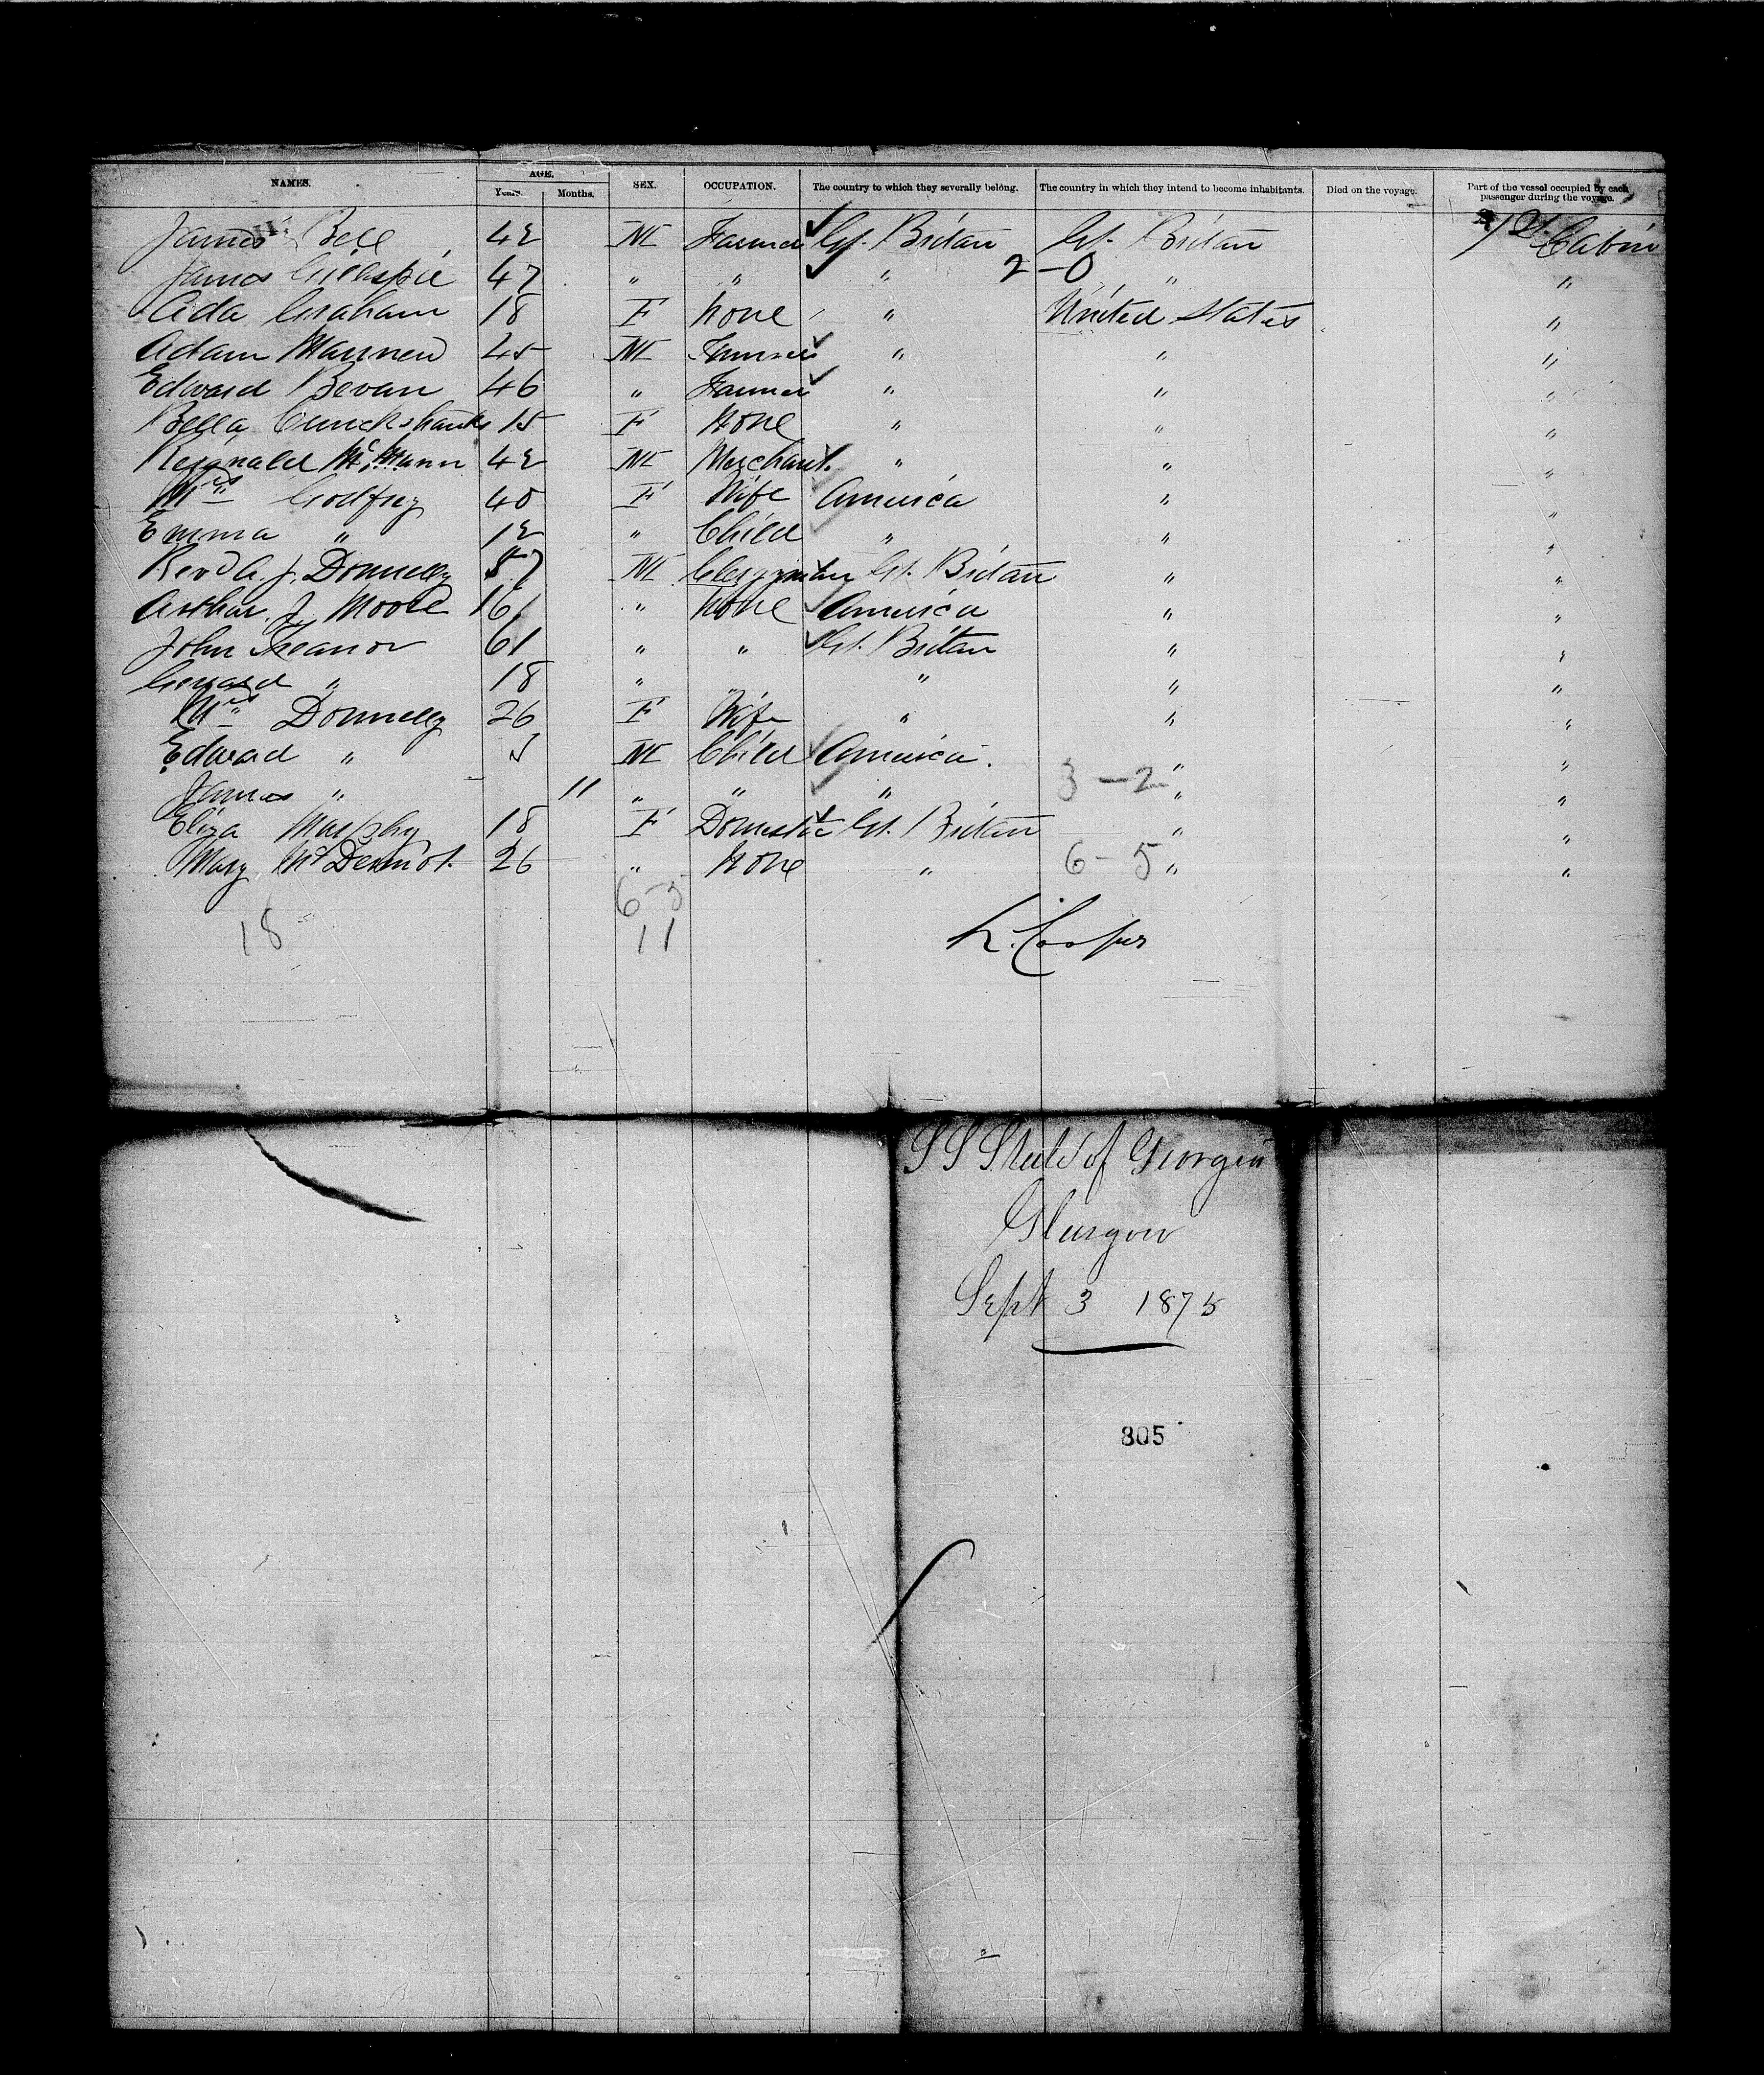 NAMES. AGE. SEX. OCCUPATION. The country to which they severally belong. The country in which they intend to become inhabitants. Died on the voyage. Part of the vessel occupied by each passenger during the voyage.
Years. Months.
James Bell 42 M Farmer Gt. Britain Gt. Britain 1st Cabin
James Gillespie 47 " " " 2-0 " "
Ada Graham 18 F None " United States "
Adam 45 M " " "
Edward Bevan 46 " Farmer " " "
Bella Cruickshank 15 F None " " "
Reginald McMann 42 M Merchant " " "
Mrs Godfrey 40 F Wife America " "
Emma " 12 " Child " " "
Revd A. J. Donnelly 57 M Clergyman Gt. Britain " "
Arthur J. Moore 16 " None America " "
John Treanor 61 " " Gt. Britain " "
Gerrard " 18 " " " " "
Mrs Donnelly 26 F Wife " " "
Edward " 5 M Child America " "
James " 11 " " " 3-2 " "
Eliza Murphy 18 F Domestic Gt. Britain " "
Mary McDermot 26 " None " 6-5 " "
6-5
18 11 Cooper
SS State of Georgia
Glasgow
Sept 3 1875
805